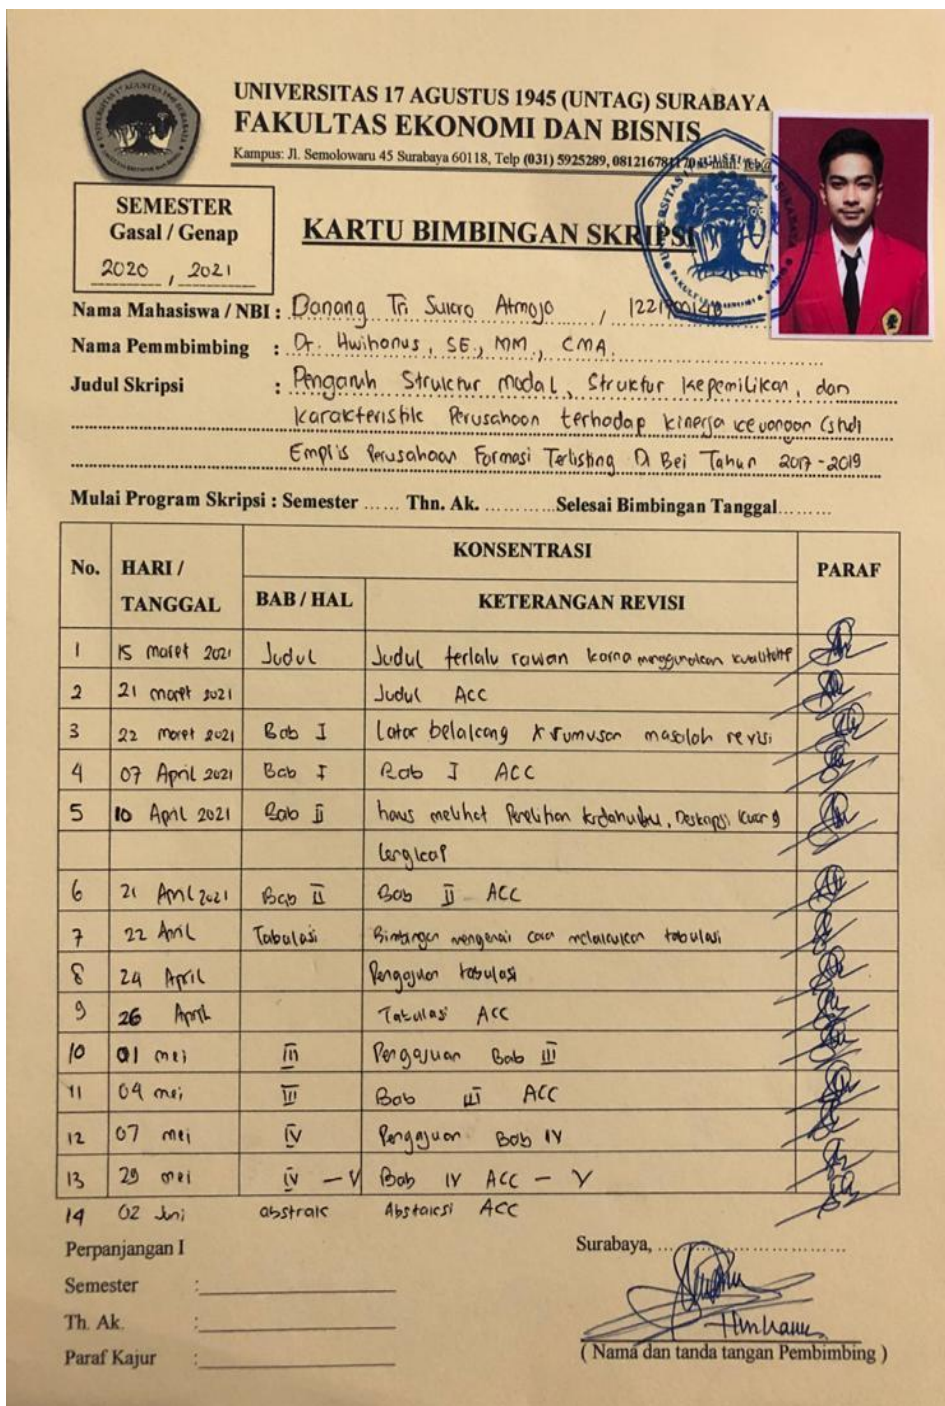 UNIVERSITAS 17 AGUSTUS 1945 (UNTAG) SURABAYA
FAKULTAS EKONOMI DAN BISNIS
Kampus: Jl. Semolowaru 45 Surabaya 60118, Telp (031) 5925289,
SEMESTER
Gasal / Genap
2020 , 2021
KARTU BIMBINGAN SKRIPSI
Nama Mahasiswa / NBI : Danang Tri Atmojo /
Nama Pemmbimbing : Dr. Hwihanus, SE., MM., CMA.
Judul Skripsi : Pengaruh Struktur modal, Struktur kepemilikan, dan
karakteristik Perusahaan terhadap kinerja keuangan (studi
Empiis Perusahaan Formasi Terlisting Di Bei Tahun 2017 - 2019
Mulai Program Skripsi : Semester ...... Thn. Ak. ............Selesai Bimbingan Tanggal.........
No. HARI / TANGGAL KONSENTRASI PARAF
BAB / HAL KETERANGAN REVISI
1 15 maret 2021 Judul Judul terlalu rawan karna menggunakan kualitatif
2 21 maret 2021 Judul ACC
3 22 maret 2021 Bab I Latar belakang & rumusan masalah revisi
4 07 April 2021 Bab I Bab I ACC
5 10 April 2021 Bab II melihat kurang
lengkap
6 21 April 2021 Bab II Bab II ACC
7 22 April Tabulasi Bimbingan mengenai cara melakukan tabulasi
8 24 April Pengajuan tabulasi
9 26 April Tabulasi ACC
10 01 mei III Pengajuan Bab III
11 04 mei III Bab III ACC
12 07 mei IV Pengajuan Bab IV
13 29 mei IV - V Bab IV ACC - V
14 02 Juni abstrak Abstaksi ACC
Perpanjangan I
Semester :
Th. Ak. :
Paraf Kajur :
Surabaya, ..............................
( Nama dan tanda tangan Pembimbing )